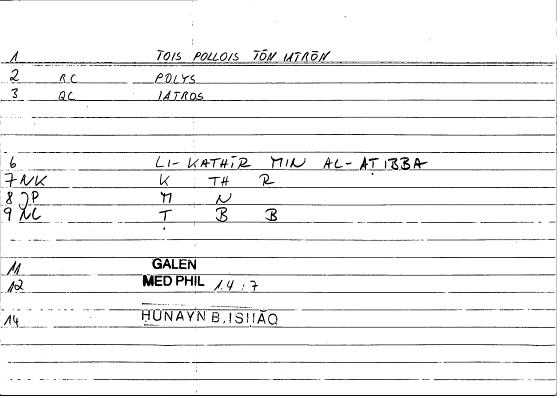 1 TOIS POLLOIS TŌN IATRŌN
2 RC POLYS
3 QC IATROS
6 LI- KATHĪR MIN AL-AṬIBBA
7 NK K TH R
8 JP M N
9 NL Ṭ B B
11 GALEN
12 MED PHIL 1.4 : 7
14 HUNAYN B. ISHĀQ